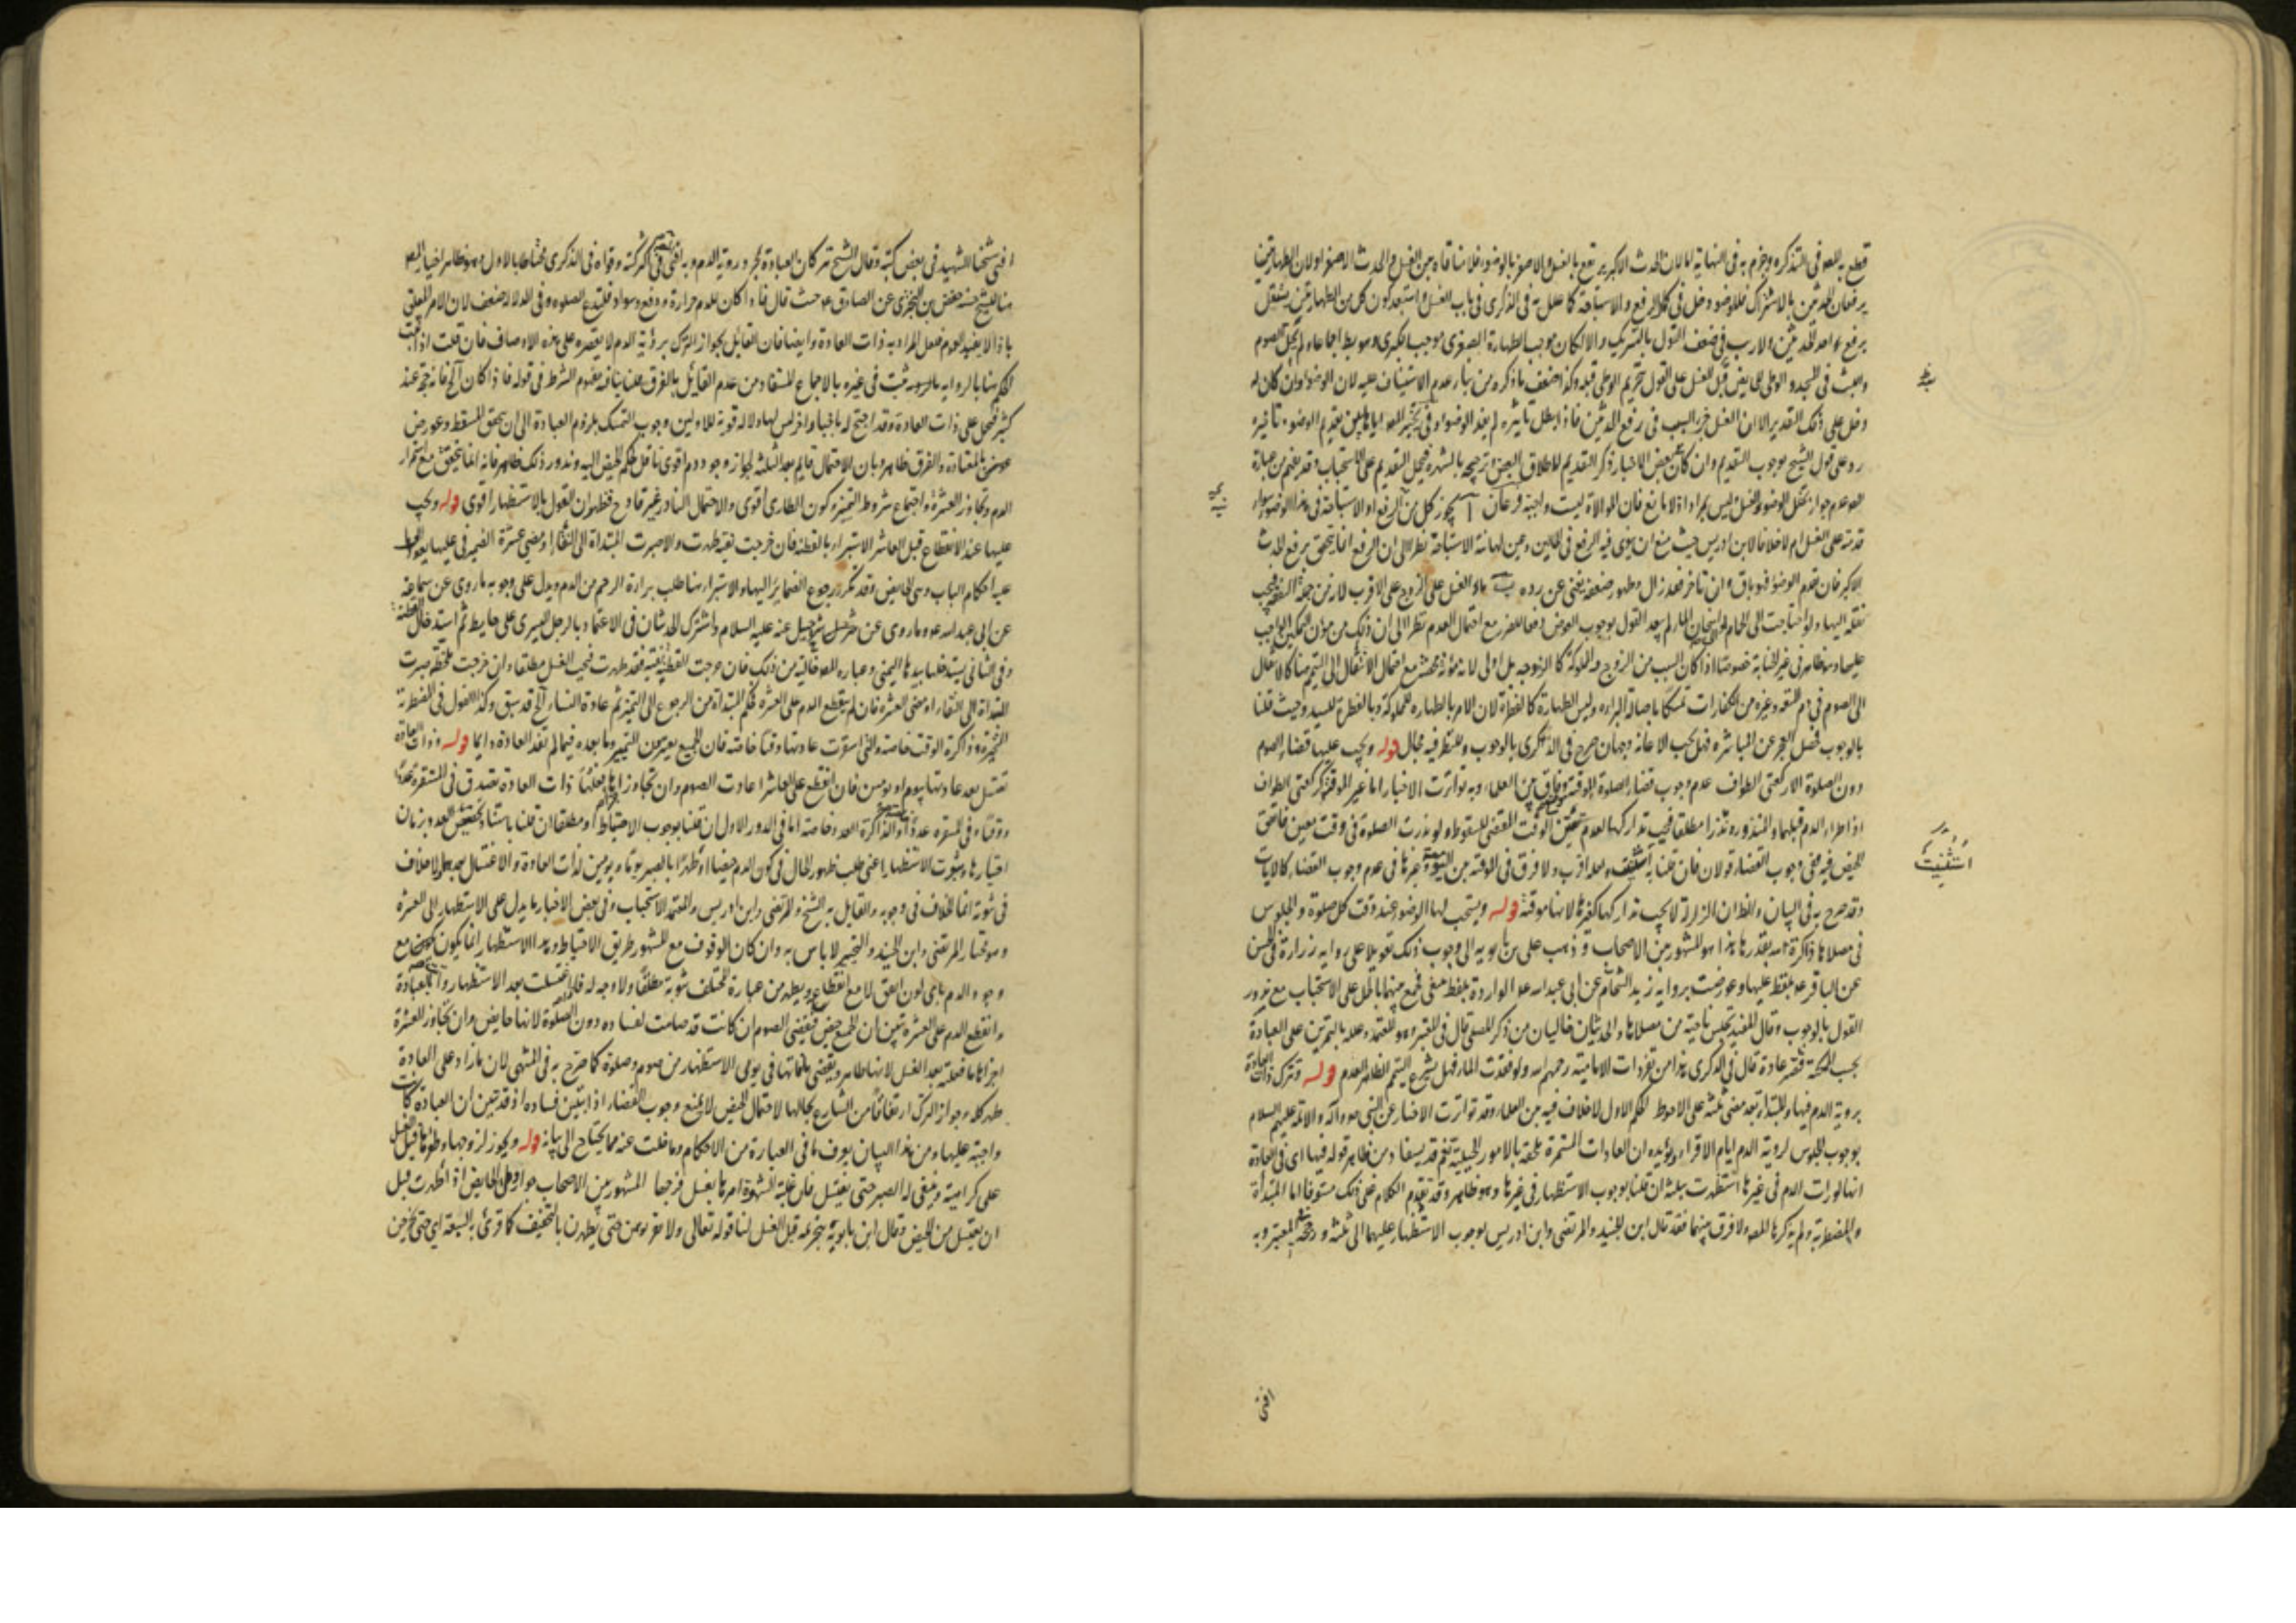 قطع به المص في التذكرة وجزم به في النهاية لنا لان الحدث الاكبر يرتفع بالغسل والاصغر بالوضوء فلا منافاة بين الغسل والحدث الاصغر او لان الطهارتين
يرفعان الحدثين بالاشتراك فللوضوء دخل في كل الرفع والاستباحة كما علل به في الذكرى في باب الغسل واستبعد كون كل من الطهارتين يستقل
برفع احد الحدثين ولا ريب في ضعف القول بالتشريك والا لكان موجب الطهارة الصغرى موجب الكبرى
واللبث في المسجد والوطي للحايض قبل الغسل على القول بتحريم الوطي قبله وكذا ضعف ما ذكره من بناء عدم الاستيناف عليه لان الوضوء وان كان له
دخل على ذلك التقدير الا ان الغسل جزء السبب في رفع الحدثين فاذا بطل تاثيره لم يفد الوضوء وفي تخيير المص اياها بين تقديم الوضوء وتأخيره
رد على قول الشيخ بوجوب التقديم وان كان في بعض الاخبار ذكر التقديم لاطلاق البعض وترجيحه بالشهرة فيحمل التقديم على الاستحباب وقد يفهم من عبارة
المص عدم جواز تخلل الوضوء الغسل وليس بمراد اذ لا مانع فان الموالاة ليست واجبة فرعان آ يجوز كل من الرفع او الاستباحة في هذا الوضوء سواء
قدمته على الغسل ام لا خلافا لابن ادريس حيث منع ان ينوى فيه الرفع في الحالين وعين لها نية الاستباحة نظرا الى ان الرفع انما يتحقق برفع الحدث
الاكبر فان تقدم الوضوء فهو باق وان تاخر فقد زال وظهور ضعفه يغني عن رده ب ماء الغسل على الزوج على الاقرب لانه من جملة النفقة فيجب
نقله اليها ولو احتاجت الى الحمام او اسخان الماء لم يبعد القول بوجوب العوض دفعا للضرر مع احتمال العدم نظرا الى ان ذلك من مؤن التمكين الواجب
عليها وهو ظاهر في غير الجنابة خصوصا اذا كان السبب من الزوج والمملوكة كالزوجة بل اولى لانه مؤنة محضة مع احتمال الانتقال الى التيمم هنا كالانتقال
الى الصوم في دم المتعة وغيره من الكفارات تمسكا باصالة البراءة وليس الطهارة كالفطرة لان الامر بالطهارة للمملوكة وبالفطرة للسيد وحيث قلنا
بالوجوب فحصل العجز عن المباشرة فهل تجب الاعانة وجهان صرح في الذكرى بالوجوب وللنظر فيه مجال قوله ويجب عليها قضاء الصوم
دون الصلوة الا ركعتي الطواف عدم وجوب قضاء الصلوة الموقتة وفاق بين العلماء وبه تواترت الاخبار اما غير الموقتة كركعتي الطواف
اذا طراء الدم قبلهما والمنذورة نذرا مطلقا فيجب تداركها لعدم تحقق الوقت المقتضي للسقوط ولو نذرت الصلوة في وقت معين فاتفق
الحيض فيه ففي وجوب القضاء قولان فان قلنا به استثنيت ولعله اقرب ولا فرق في الموقتة بين اليومية وغيرها في عدم وجوب القضاء كالايات
وقد صرح به في البيان والظ ان الزلزلة لا يجب تداركها كغيرها لانها موقتة قوله ويستحب لها الوضوء عند وقت كل صلوة والجلوس
في مصلاها ذاكرة لله بقدرها هذا هو المشهور بين الاصحاب وذهب علي بن بابويه الى وجوب ذلك تعويلا على رواية زرارة في الحسن
عن الباقر عه بلفظ عليها وعورضت برواية زيد الشحام عن ابي عبد الله عه الواردة بلفظ ينبغي فجمع بينهما بالحمل على الاستحباب مع ندور
القول بالوجوب وقال المفيد تجلس ناحية من مصلاها والحديثان خاليان من ذكر المصلى قال في المعتبر وهو المعتمد وعلله بالتمرين على العبادة
بحسب المكنة فتصير عادة قال في الذكرى هذا من تفردات الامامية رحمهم الله ولو فقدت الماء فهل يشرع التيمم الظاهر العدم قوله وتترك ذات العادة
بروية الدم فيها والمبتداة بعد مضي ثلثة على الاحوط الحكم الاول لا خلاف فيه بين العلماء وقد تواترت الاخبار عن النبي صم وآله والائمة عليهم السلام
بوجوب الجلوس لروية الدم ايام الاقراء ويؤيده ان العادات المستمرة ملحقة بالامور الجبلية نعم قد يستفاد من ظاهر قوله فيها اى في العادة
انها لو رات الدم في غيرها استظهرت بثلثة ان قلنا بوجوب الاستظهار في غيرها وهو ظاهر وقد تقدم الكلام على ذلك مستوفا اما المبتدأة
والمضطربة ولم يذكرها المص ولا فرق بينهما فقد قال ابن الجنيد والمرتضى وابن ادريس بوجوب الاستظهار عليهما الى ثلثة ورجحه في المعتبر وبه
استثنيت
افتى
افتى شيخنا الشهيد في بعض كتبه وقال الشيخ تتركان العبادة بمجرد روية الدم وبه افتى المص في اكثر كتبه وقواه في الذكرى محتاطا بالاول وهو ظاهر اختيار المص
هنا للشيخ حسنة حفص بن البختري عن الصادق عه حيث قال فاذا كان للدم حرارة ودفع وسواد فلتدع الصلوة وفي الدلالة ضعف لان الامر المعلق
باذا لا يفيد العموم فلعل المراد به ذات العادة وايضا فان القائل بجواز الترك برؤية الدم لا يقصره على هذه الاوصاف فان قلت اذا ثبت
الحكم هنا بالرواية ثبت في غيره بالاجماع المستفاد من عدم القائل بالفرق قلنا ينافيه مفهوم الشرط في قوله فاذا كان آلخ فانه حجة عند
كثير فيحمل على ذات العادة وقد احتج له باخبار اخر ليس لها دلالة قوية للاولين وجوب التمسك بلزوم العبادة الى ان يتحقق المسقط وعورض
بالمعتادة والفرق ظاهر وبان الاحتمال قايم بعد الثلثة لجواز وجود دم اقوى ناقل لحكم الحيض اليه وندور ذلك ظاهر فانه انما يتحقق مع استمرار
الدم وتجاوز العشرة واجتماع شروط التميز وكون الطارى اقوى والاحتمال النادر غير قادح فظهر ان القول بالاستظهار اقوى قوله ويجب
عليها عند الانقطاع قبل العاشر الاستبراء بالقطنة فان خرجت نقية طهرت والا صبرت المبتداة الى النقاء او مضي عشرة الضمير في عليها يعود الى
عليه احكام الباب وهي الحايض وقد تكرر رجوع الضماير اليها والاستبراء هنا طلب براءة الرحم من الدم ويدل على وجوبه ما روى عن سماعة
عن ابي عبد الله عه وما روى عن شرحبيل عنه عليه السلام واشترك الحديثان في الاعتماد بالرجل اليسرى على حايط ثم استدخال القطنة
وفي الثاني يستدخلها بيدها اليمنى وعبارة المص خالية من ذلك فان خرجت القطنة نقية فقد طهرت فيجب الغسل مطلقا وان خرجت ملطخة صبرت
المبتداة الى النقاء او مضي العشرة فان لم ينقطع الدم على العشرة فحكم المبتداة من الرجوع الى التميز ثم عادة النساء آلخ قد سبق وكذا القول في المضطربة
المتحيرة وذاكرة الوقت خاصة والتي استقرت عادتها وقتا خاصة فان الجميع يعتبرون التمييز وما بعده فيما لم تفد العادة دايما قوله وذات العادة
تغتسل بعد عادتها بيوم او يومين فان انقطع على العاشر اعادت الصوم وان تجاوز اجزأها فعلها ذات العادة تصدق في المستقرة عددا
ووقتا وفي المستقرة عددا او الذاكرة العدد خاصة اما في الدور الاول ان قلنا بوجوب الاحتياط او مطلقا ان قلنا باستناد تخصيص العدد بزمان
اختيارها وثبوت الاستظهار اعني طلب ظهور الحال في كون الدم حيضا او طهرا بالصبر يوما او يومين لذات العادة والاغتسال بعدها لا خلاف
في ثبوته انما الخلاف في وجوبه والقايل به الشيخ والمرتضى وابن ادريس والمعتمد الاستحباب وفي بعض الاخبار ما يدل على الاستظهار الى العشرة
وهو مختار المرتضى وابن الجنيد والتخيير لا باس به وان كان الوقوف مع المشهور طريق الاحتياط وهذا الاستظهار انما يكون مع
وجود الدم باي لون اتفق لا مع انقطاعه ويظهر من عبارة المختلف ثبوته مطلقا ولا وجه له فاذا اغتسلت بعد الاستظهار واتت بالعبادة
وانقطع الدم على العشرة تبين ان الجميع حيض فتقضي الصوم ان كانت قد صامت لفساده دون الصلوة لانها حايض وان تجاوز العشرة
اجزاها ما فعلته بعد الغسل لانها طاهر وتقضي ما فاتها في يومي الاستظهار من صوم وصلوة كما صرح به في المنتهى لان ما زاد على العادة
طهر كله وجواز الترك ارتفاقا من الشارع بحالها لاحتمال الحيض لا يمنع وجوب القضاء اذا تبين فساده اذ قد تبين ان العبادة كانت
واجبة عليها ومن هذا البيان يعرف ما في العبارة من الاحكام وما خلت عنه مما يحتاج الى بيانه قوله ويجوز لزوجها وطؤها قبل الغسل
على كراهية وينبغي له الصبر حتى يغتسل فان غلبته الشهوة امرها بغسل فرجها المشهور بين الاصحاب جواز وطي الحايض اذا طهرت قبل
ان يغتسل من الحيض وقال ابن بابويه بتحريمه قبل الغسل لنا قوله تعالى ولا تقربوهن حتى يطهرن بالتخفيف كما قرئ به السبعة اي حتى يخرجن